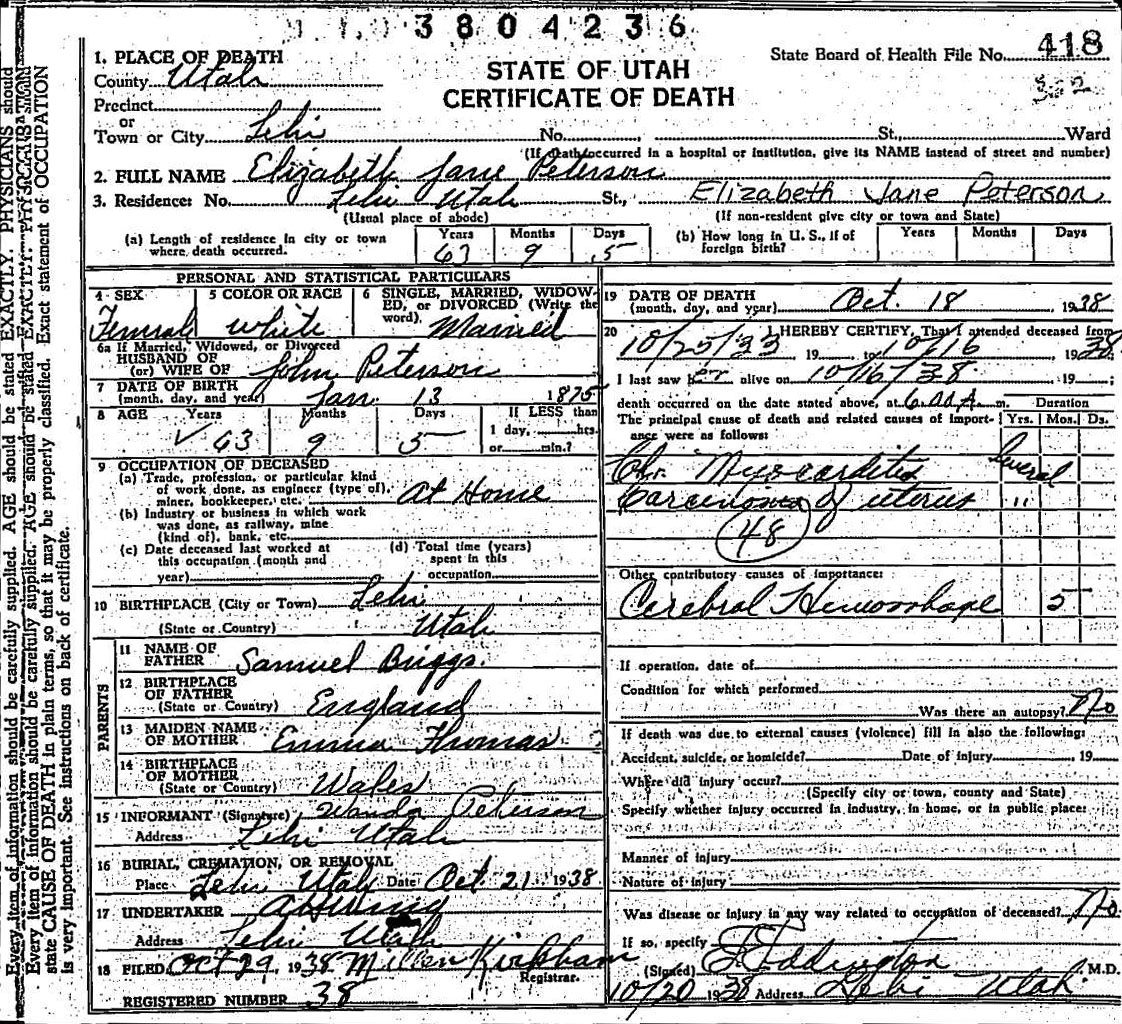 3804236
1. PLACE OF DEATH
County Utah
Precinct
or
Town or City Lehi No. St., Ward
STATE OF UTAH
CERTIFICATE OF DEATH
State Board of Health File No. 418
(If death occurred in a hospital or institution, give its NAME instead of street and number)
2. FULL NAME Elizabeth Jane Peterson
3. Residence: No. Lehi Utah St., Elizabeth Jane Peterson
(Usual place of abode) (If non-resident give city or town and State)
(a) Length of residence in city or town where death occurred. Years 63 Months 9 Days 5
(b) How long in U. S., if of foreign birth? Years Months Days
PERSONAL AND STATISTICAL PARTICULARS
4 SEX Female
5 COLOR OR RACE white
6 SINGLE, MARRIED, WIDOWED, or DIVORCED (Write the word). Married
6a If Married, Widowed, or Divorced
HUSBAND OF
(or) WIFE OF John Peterson
7 DATE OF BIRTH
(month, day, and year) Jan 13 1875
8 AGE Years 63 Months 9 Days 5 If LESS than
1 day, hrs.
or min.?
9 OCCUPATION OF DECEASED
(a) Trade, profession, or particular kind
of work done, as engineer (type of),
miner, bookkeeper, etc. At Home
(b) Industry or business in which work
was done, as railway, mine
(kind of), bank, etc.
(c) Date deceased last worked at
this occupation (month and
year)
(d) Total time (years)
spent in this
occupation.
10 BIRTHPLACE (City or Town) Lehi
(State or Country) Utah
PARENTS
11 NAME OF
FATHER Samuel Briggs.
12 BIRTHPLACE
OF FATHER
(State or Country) England
13 MAIDEN NAME
OF MOTHER Emma Thomas.
14 BIRTHPLACE
OF MOTHER
(State or Country) Wales
15 INFORMANT (Signature) Wanda Peterson
Address Lehi Utah
16 BURIAL, CREMATION, OR REMOVAL
Place Lehi Utah Date Oct 21 1938
17 UNDERTAKER
Address Lehi Utah
18 FILED Oct 29, 1938 Millen Kirkham
Registrar.
REGISTERED NUMBER 38
19 DATE OF DEATH
(month, day, and year) Oct. 18 1938
20 I HEREBY CERTIFY, That I attended deceased from
10/25/33 19 to 10/16 1938
I last saw her alive on 10/16/38 19 ;
death occurred on the date stated above, at 6.00 A. m. Duration
The principal cause of death and related causes of importance were as follows: Yrs. Mos. Ds.
Chr. Myocarditis Several
Carcinoma of uterus "
48
Other contributory causes of importance:
Cerebral Hemorrhage 5
If operation, date of
Condition for which performed
Was there an autopsy? No
If death was due to external causes (violence) fill in also the following:
Accident, suicide, or homicide? Date of injury 19
Where did injury occur?
(Specify city or town, county and State)
Specify whether injury occurred in industry, in home, or in public place:
Manner of injury
Nature of injury
Was disease or injury in any way related to occupation of deceased? No
If so, specify
(Signed) Eddington M.D.
10/20 1938 Address Lehi Utah.
Every item of information should be carefully supplied. AGE should be stated EXACTLY. PHYSICIANS should
state CAUSE OF DEATH in plain terms, so that it may be properly classified. Exact statement of OCCUPATION
is very important. See instructions on back of certificate.